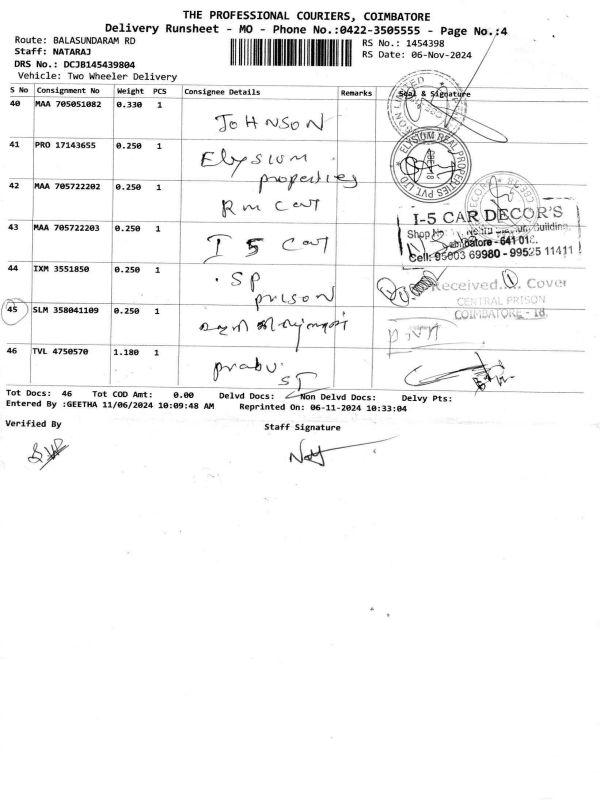 THE PROFESSIONAL COURIERS, COIMBATORE
Delivery Runsheet - MO - Phone No.:0422-3505555 - Page No.:4
Route: BALASUNDARAM RD
RS No.: 1454398
Staff: NATARAJ
RS Date: 06-Nov-2024
DRS No.: DCJB145439804
Vehicle: Two Wheeler Delivery
S No Consignment No Weight PCS Consignee Details Remarks Seal & Signature
40 MAA 705051082 0.330 1 JOHNSON
41 PRO 17143655 0.250 1 Elysium properties
ELYSIUM REAL PROPERTIES PVT LTD
42 MAA 705722202 0.250 1 Rm Car
43 MAA 705722203 0.250 1 I 5 Car
I-5 CAR DECOR'S
Shop No
Building,
641 018.
Cell: 95003 69980 - 99525 11411
44 IXM 3551850 0.250 1 SP prison
Received. Cover
CENTRAL PRISON
COIMBATORE - 18.
45 SLM 358041109 0.250 1
46 TVL 4750570 1.180 1 prabu ST
Tot Docs: 46 Tot COD Amt: 0.00 Delvd Docs: Non Delvd Docs: Delvy Pts:
Entered By :GEETHA 11/06/2024 10:09:48 AM Reprinted On: 06-11-2024 10:33:04
Verified By
Staff Signature